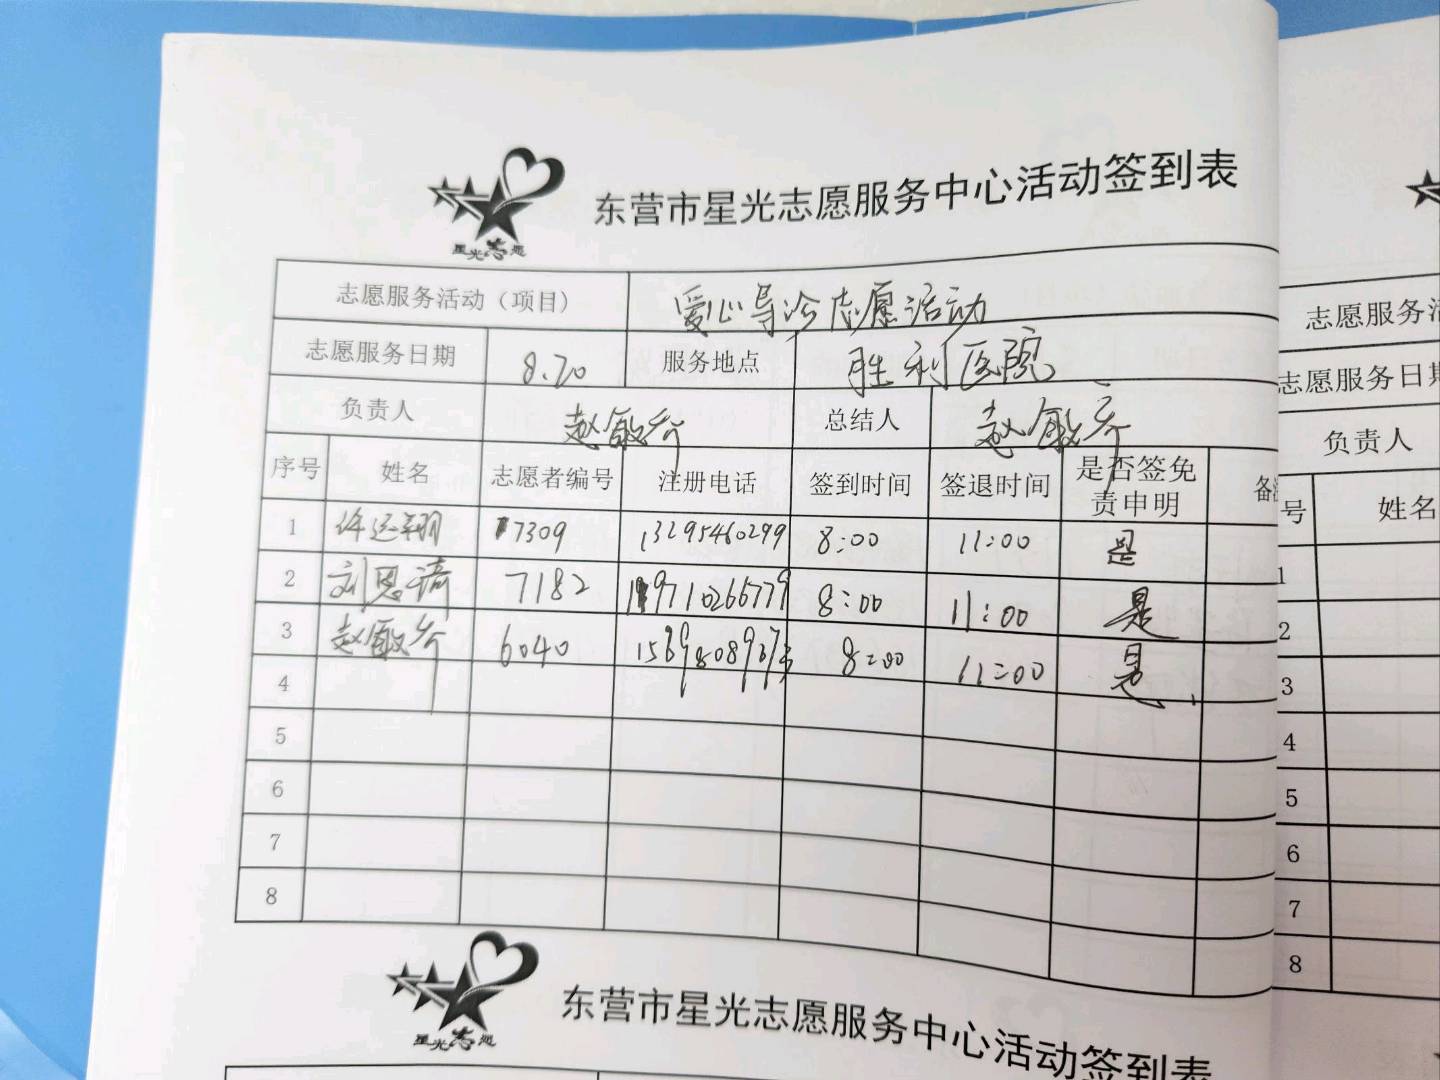 星光志愿
东营市星光志愿服务中心活动签到表
志愿服务活动（项目） 爱心导诊志愿活动
志愿服务日期 8.20 服务地点 胜利医院
负责人 赵敏 总结人 赵敏
序号 姓名 志愿者编号 注册电话 签到时间 签退时间 是否签免责申明 备
1 许运翔 7309 13295460299 8:00 11:00 是
2 刘思琦 7182 8:00 11:00 是
3 赵敏 6040 8:00 11:00 是
4
5
6
7
8
星光志愿
东营市星光志愿服务中心活动签到表
志愿服务活
志愿服务日期
负责人
号 姓名
1
2
3
4
5
6
7
8